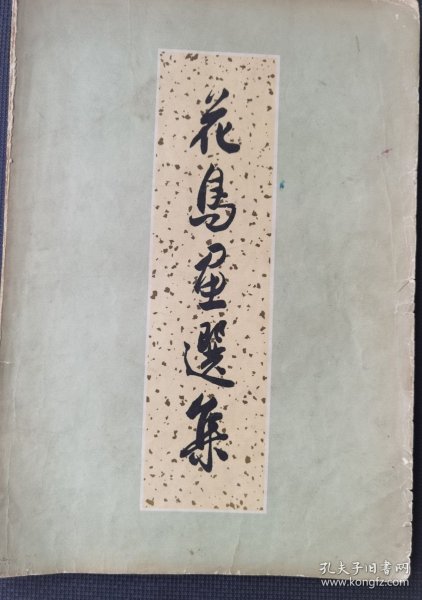 花鳥画選集
孔夫子旧书网
www.kongfz.com